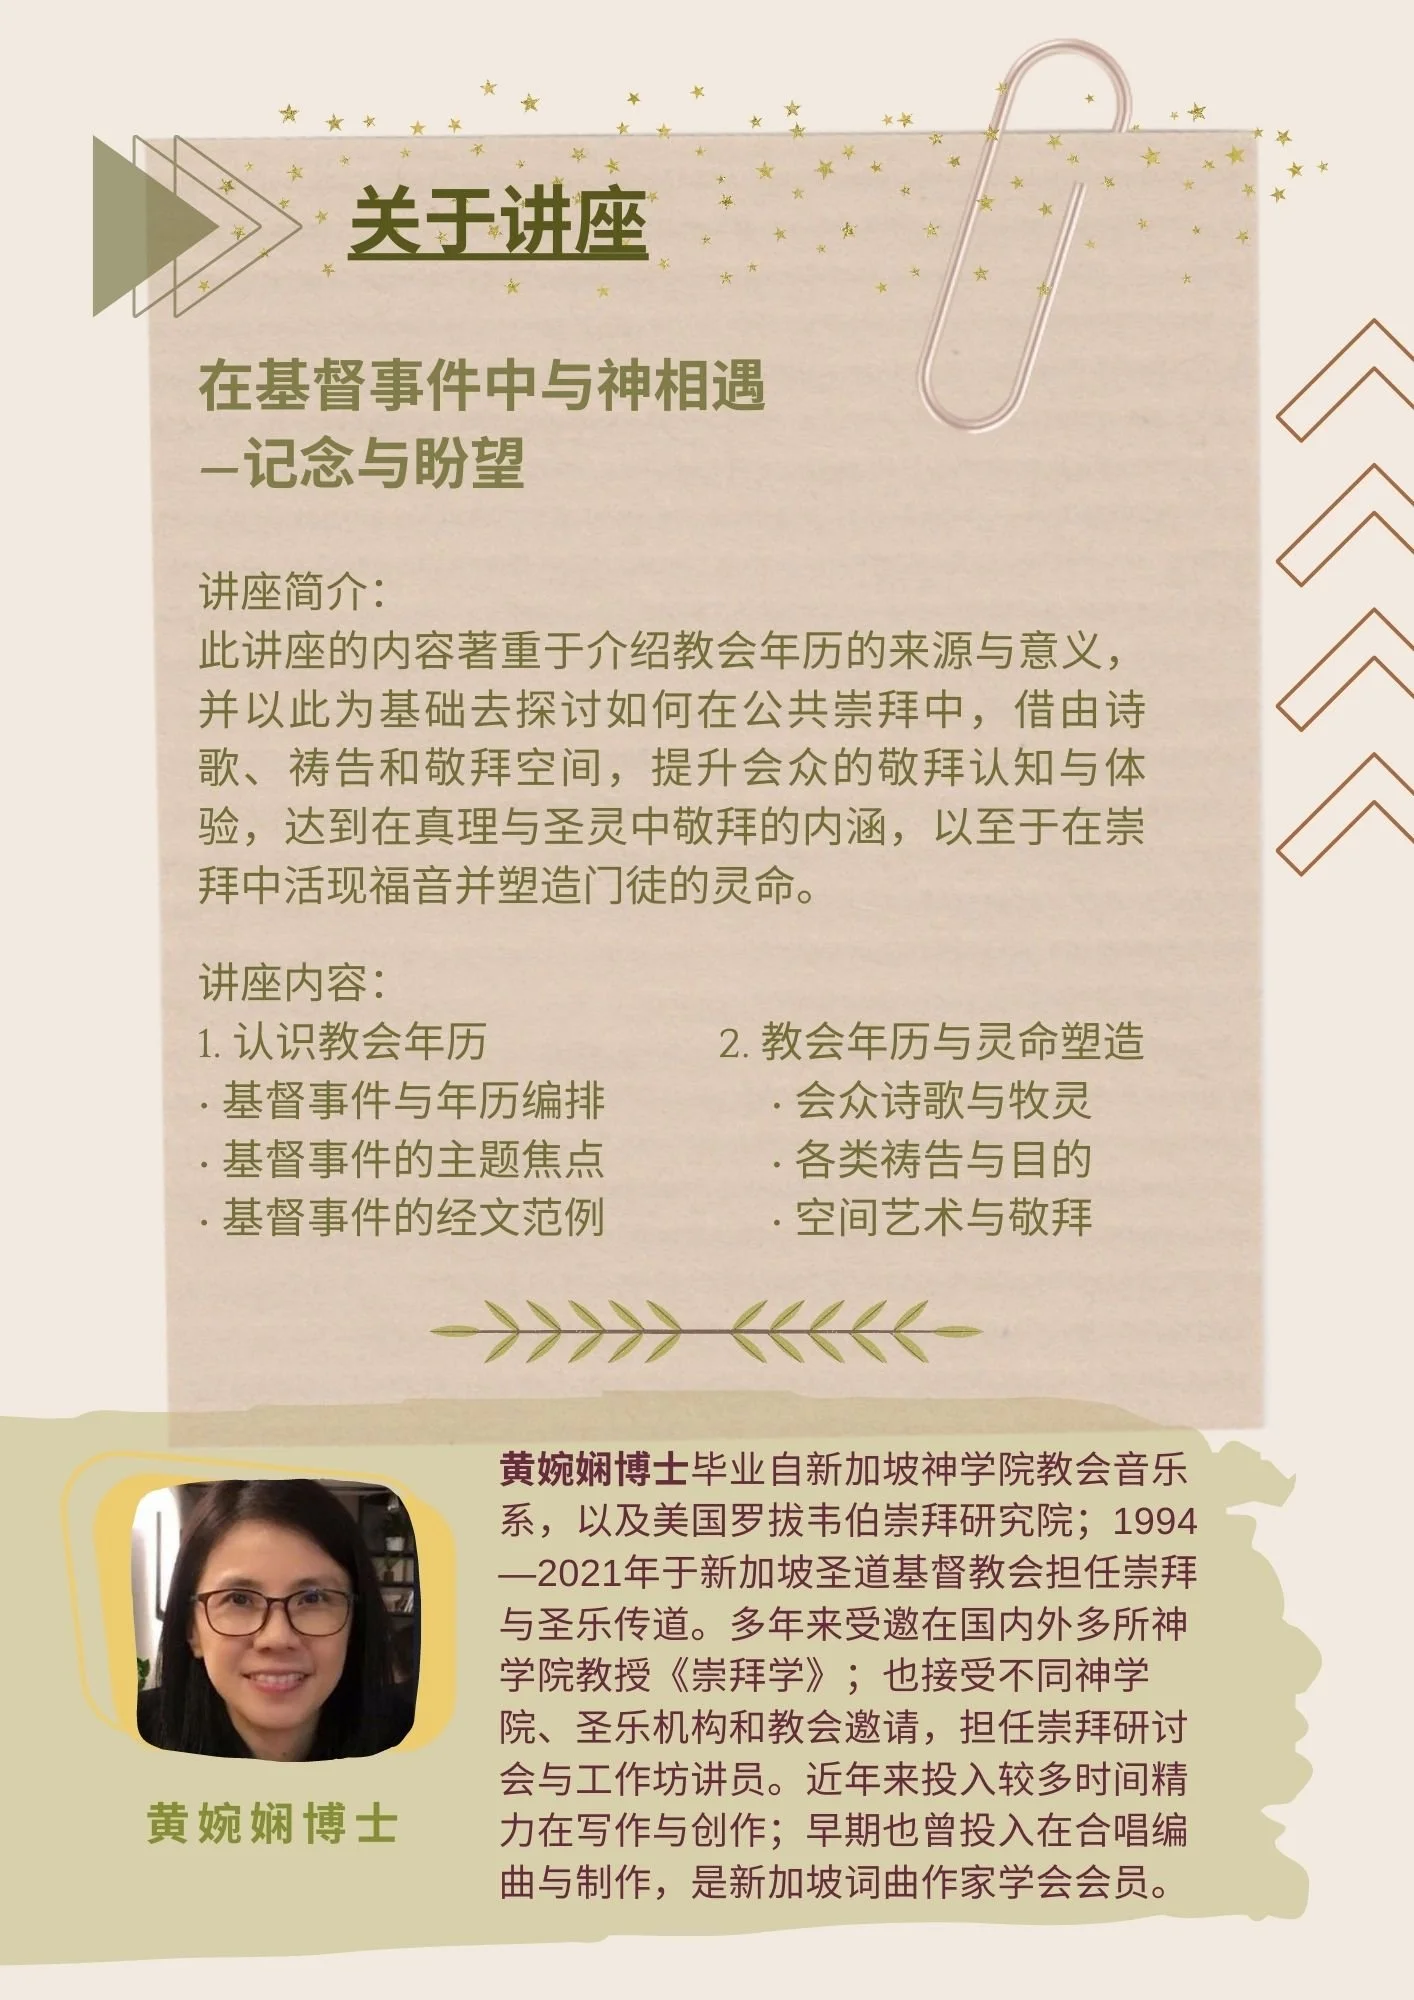 关于讲座
在基督事件中与神相遇
—记念与盼望
讲座简介：
此讲座的内容著重于介绍教会年历的来源与意义，
并以此为基础去探讨如何在公共崇拜中，借由诗
歌、祷告和敬拜空间，提升会众的敬拜认知与体
验，达到在真理与圣灵中敬拜的内涵，以至于在崇
拜中活现福音并塑造门徒的灵命。
讲座内容：
1. 认识教会年历
· 基督事件与年历编排
· 基督事件的主题焦点
· 基督事件的经文范例
2. 教会年历与灵命塑造
· 会众诗歌与牧灵
· 各类祷告与目的
· 空间艺术与敬拜
黄婉娴博士毕业自新加坡神学院教会音乐
系，以及美国罗拔韦伯崇拜研究院；1994
—2021年于新加坡圣道基督教会担任崇拜
与圣乐传道。多年来受邀在国内外多所神
学院教授《崇拜学》；也接受不同神学
院、圣乐机构和教会邀请，担任崇拜研讨
会与工作坊讲员。近年来投入较多时间精
力在写作与创作；早期也曾投入在合唱编
曲与制作，是新加坡词曲作家学会会员。
黄婉娴博士